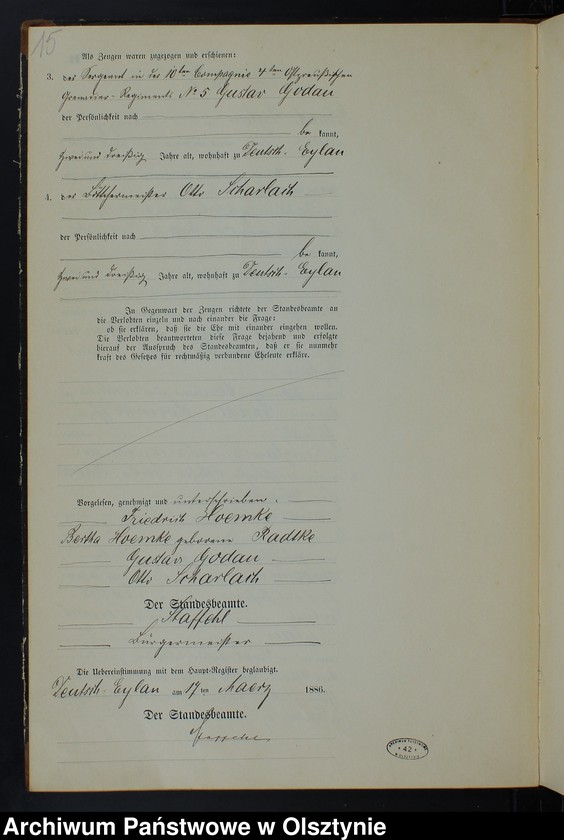 15
Als Zeugen waren zugezogen und erschienen:
3. der Sergeant in der 10ten Compagnie 4ten Ostpreußischen
Grenadier-Regiments No 5 Gustav Godau
der Persönlichkeit nach
be kannt,
zwei und dreißig Jahre alt, wohnhaft zu Deutsch-Eylau
4. der Böttchermeister Otto Scharlach
der Persönlichkeit nach
be kannt,
zwei und dreißig Jahre alt, wohnhaft zu Deutsch-Eylau
In Gegenwart der Zeugen richtete der Standesbeamte an
die Verlobten einzeln und nach einander die Frage:
ob sie erklären, daß sie die Ehe mit einander eingehen wollen.
Die Verlobten beantworteten diese Frage bejahend und erfolgte
hierauf der Ausspruch des Standesbeamten, daß er sie nunmehr
kraft des Gesetzes für rechtmäßig verbundene Eheleute erkläre.
Vorgelesen, genehmigt und unterschrieben.
Friedrich Hoemke
Bertha Hoemke geborene Radtke
Gustav Godau
Otto Scharlach
Der Standesbeamte.
Staffehl
Bürgermeister
Die Uebereinstimmung mit dem Haupt-Register beglaubigt.
Deutsch-Eylau am 17 ten Maerz 1886.
Der Standesbeamte.
Staffehl
42
Archiwum Państwowe w Olsztynie